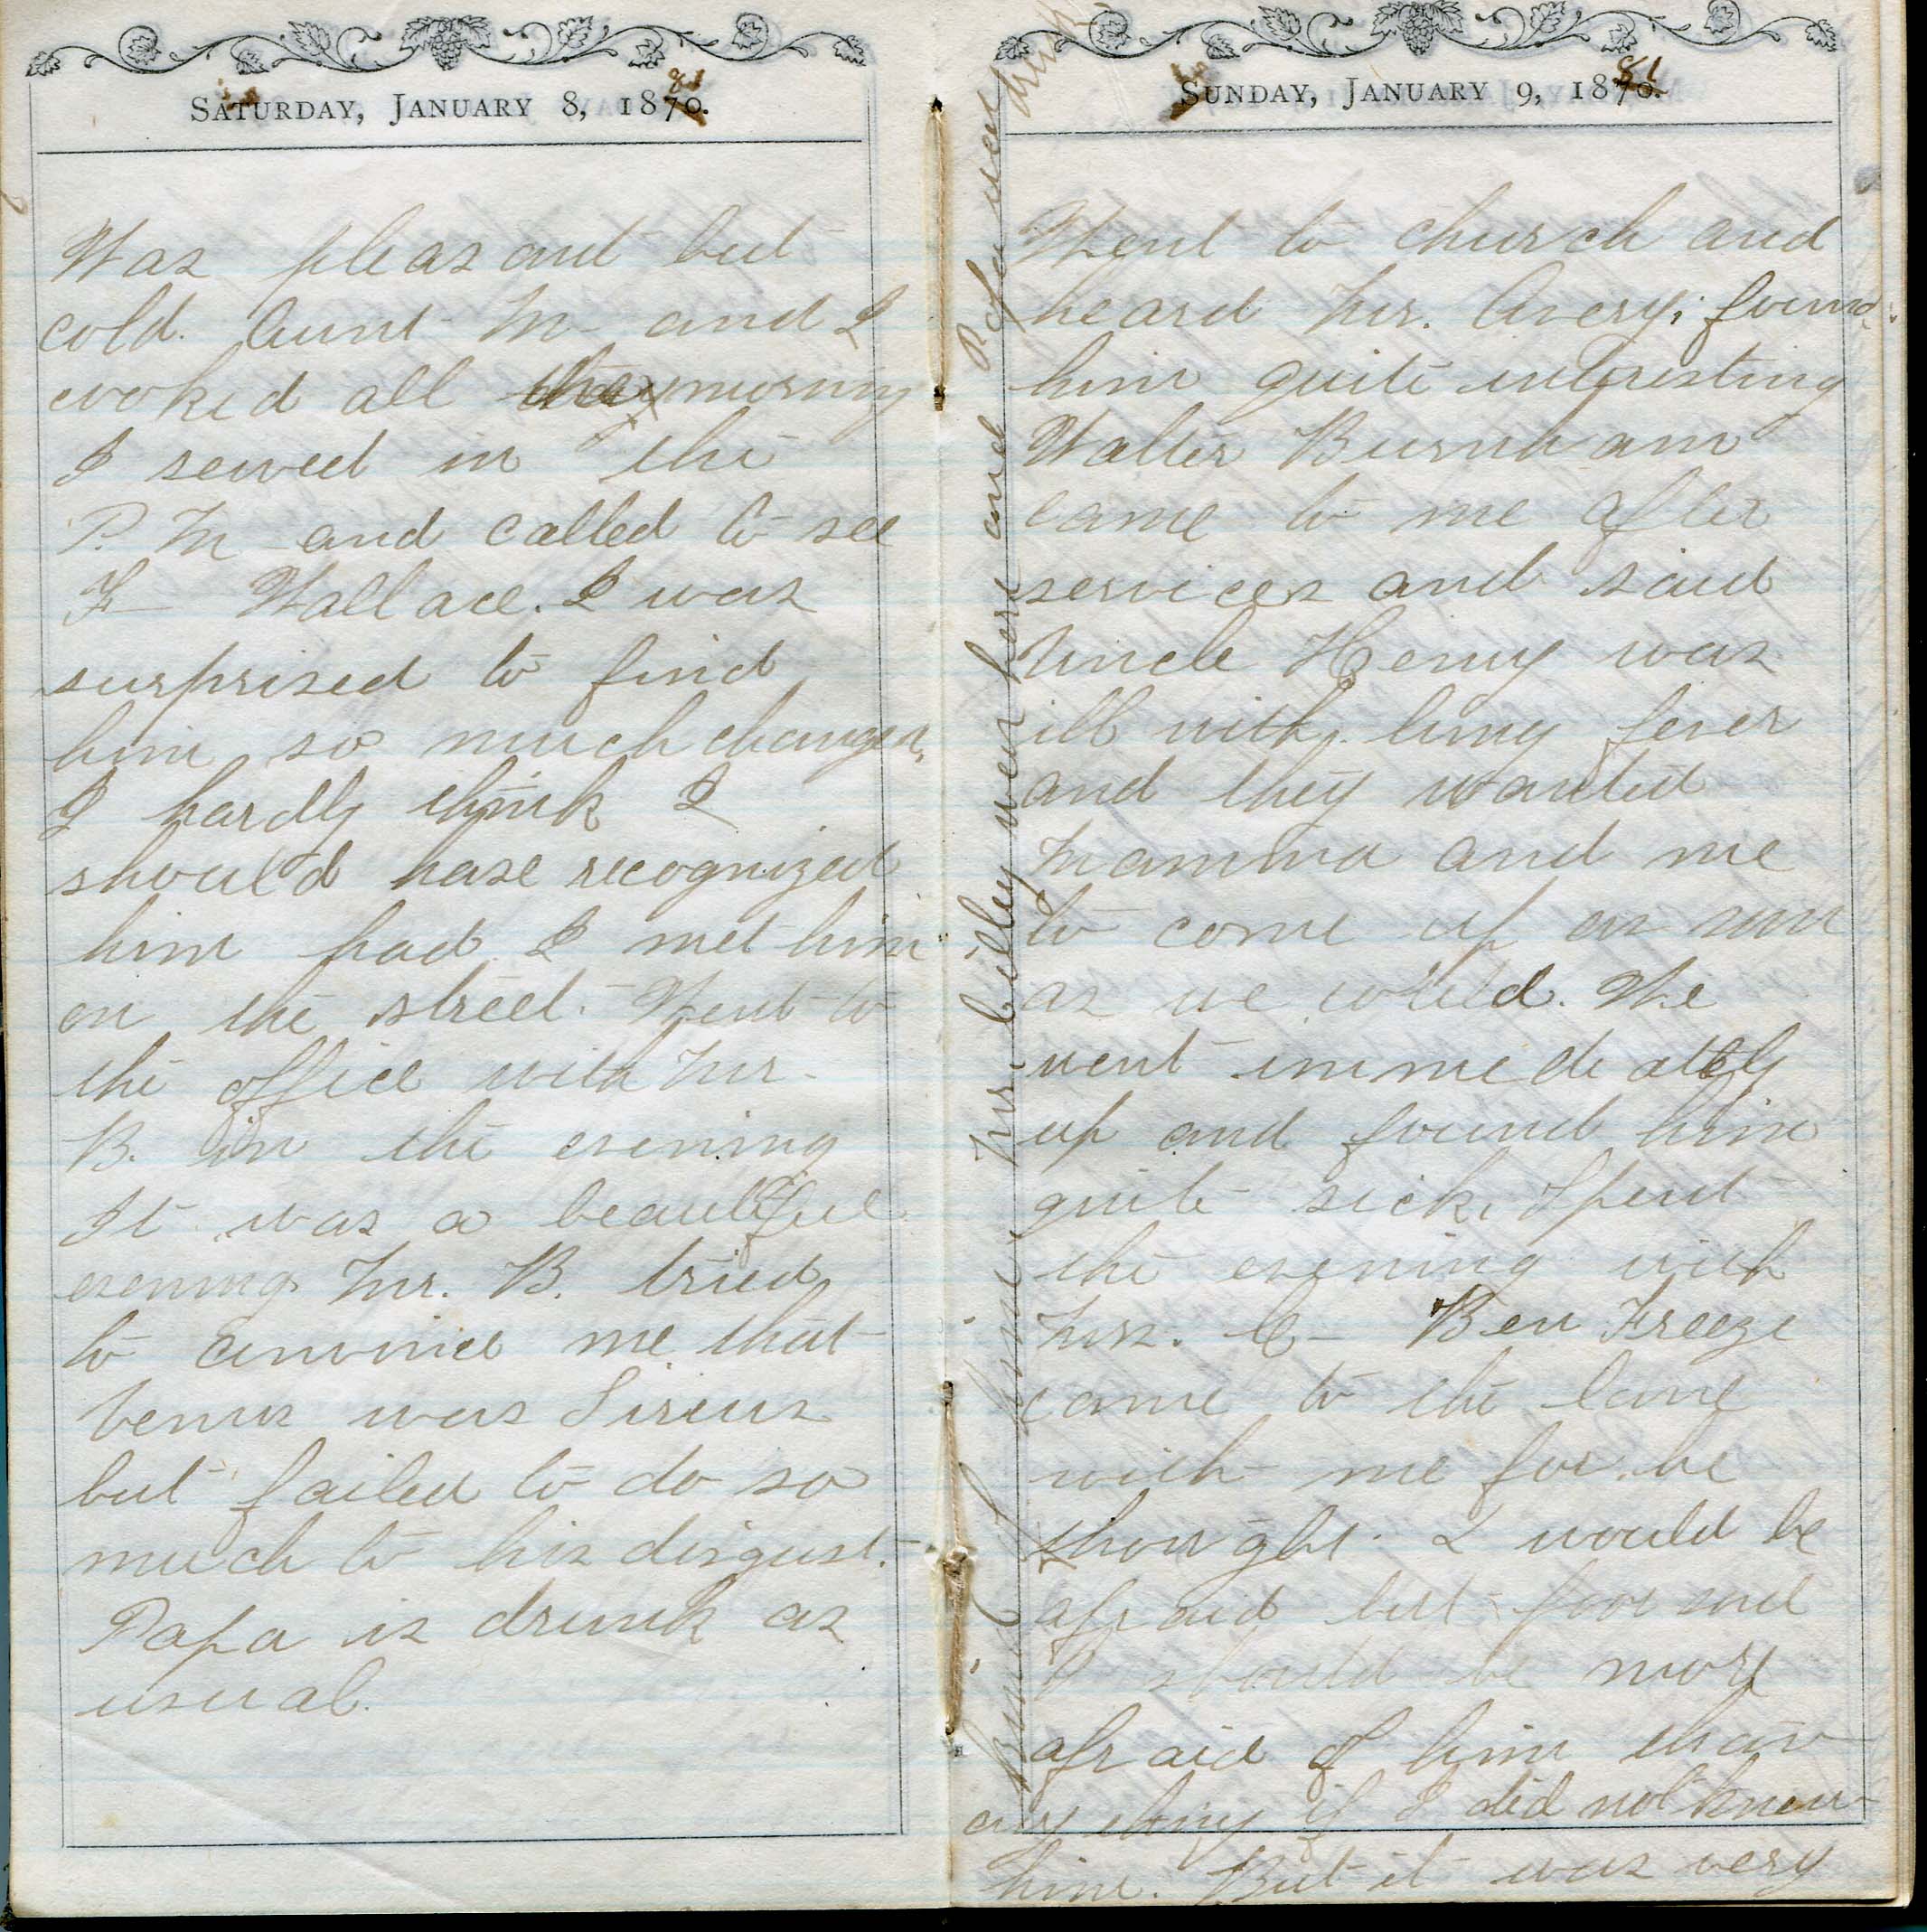 SATURDAY, JANUARY 8, 1870.
81
Was pleasant but
cold. Aunt M- and I
cooked all the morning
I sewed in the
P. M and called to see
F- Wallace. I was
surprised to find
him so much changed,
I hardly think I
should have recognized
him had I met him
on the street. Went to
the office with Mr.
B. in the evening
It was a beautiful
evening. Mr. B. tried
to convince me that
Venus was Sirius
but failed to do so
much to his disgust.
Papa is drunk as
usual.
SUNDAY, JANUARY 9, 1870.
81
Went to church and
heard Mr. Avery; found
him quite interesting
Walter Burnham
came to me after
services and said
Uncle Henry was
ill with lung fever
and they wanted
Mamma and me
to come up as soon
as we could. We
went immediately
up and found him
quite sick. Spent
the evening with
Mrs. C- Ben Freeze
came to the lane
with me for he
thought I would be
afraid but
I should be more
afraid of him than
any thing if I did not know
him. But it was very
kind of him. Mr. Cilley were here and Papa was
drunk.